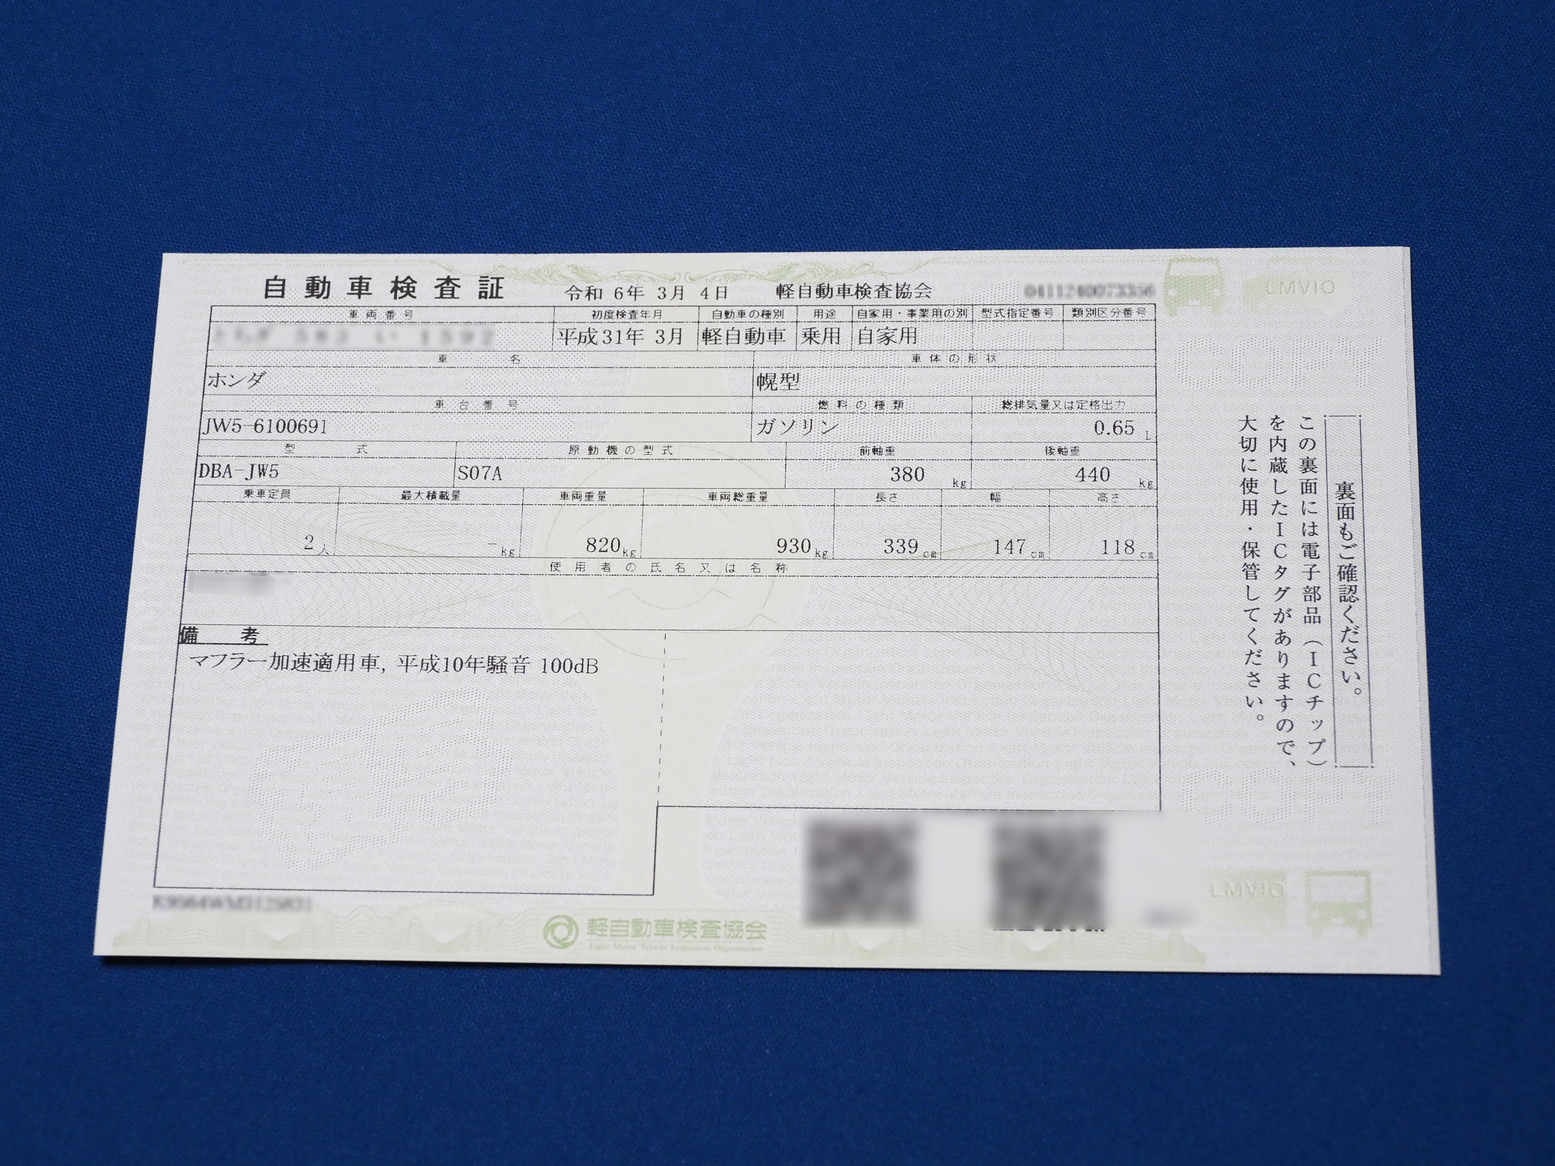 自動車検査証 令和 6年 3月 4日 軽自動車検査協会
車両番号 初度検査年月 自動車の種別 用途 自家用・事業用の別 型式指定番号 類別区分番号
平成31年 3月 軽自動車 乗用 自家用
車名 車体の形状
ホンダ 幌型
車台番号 燃料の種類 総排気量又は定格出力
JW5-6100691 ガソリン 0.65 L
型式 原動機の型式 前軸重 後軸重
DBA-JW5 S07A 380 kg 440 kg
乗車定員 最大積載量 車両重量 車両総重量 長さ 幅 高さ
2人 -kg 820kg 930kg 339cm 147cm 118cm
使用者の氏名又は名称
備考
マフラー加速適用車, 平成10年騒音 100dB
裏面もご確認ください。
この裏面には電子部品（ICチップ）
を内蔵したICタグがありますので、
大切に使用・保管してください。
LMVIO
LMVIO
軽自動車検査協会
Light Motor Vehicle Inspection Organization